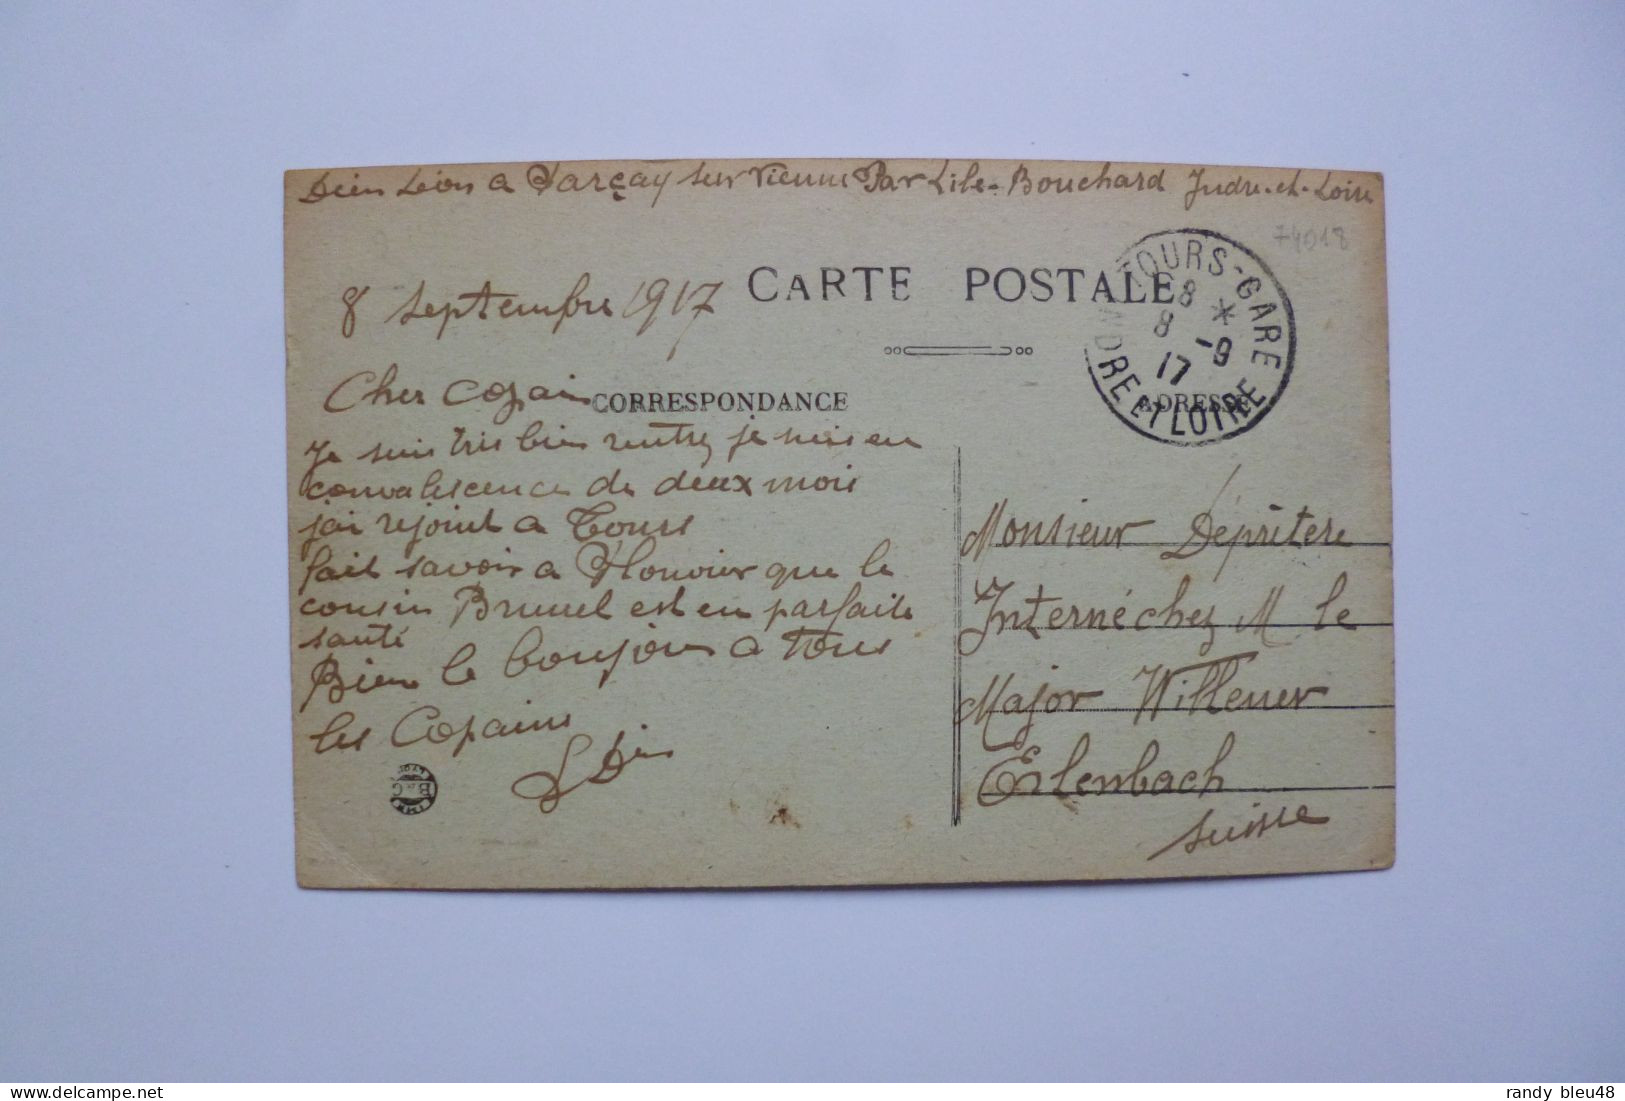 Dien Léon a Parçay sur Vienne Par L'ile-Bouchard Indre-et-Loire
74018
8 septembre 1917
CARTE POSTALE
TOURS-GARE
8 *
8 -9
17
INDRE ET LOIRE
CORRESPONDANCE
ADRESSE
Cher Copain
Je suis tres bien rentrez je suis en
convalescence de deux mois
j'ai rejoint a Tours
fait savoir a que le
cousin Brunel est en parfaite
santé
Bien le bonjour a tous
les Copains
L Dien
Monsieur Déprètere
Interné chez M le
Major Willener
Erlenbach
Suisse
B & C
randy bleu48